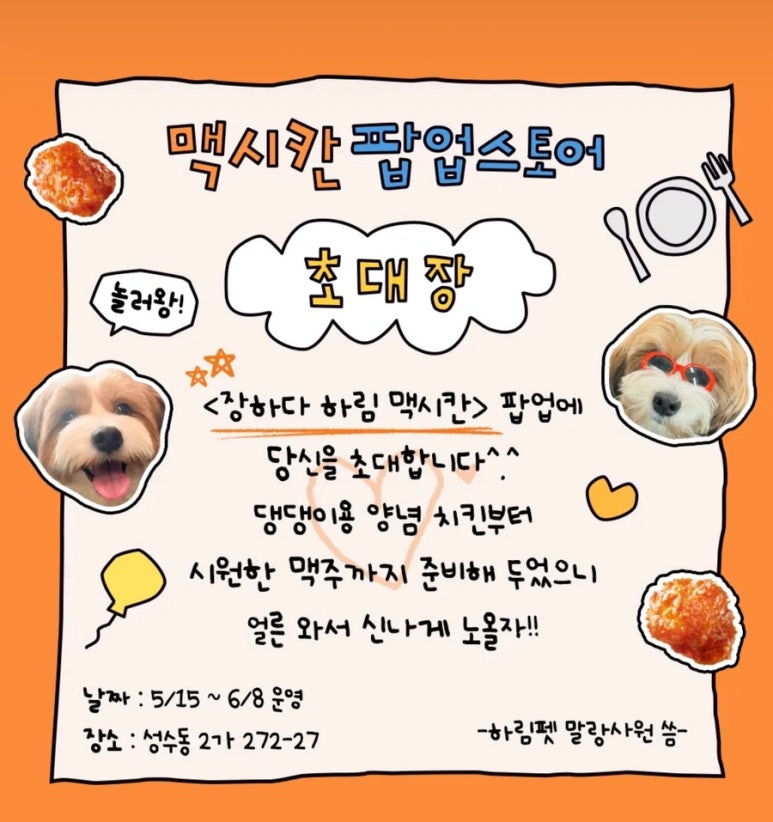 맥시칸 팝업스토어
초대장
놀러왕!
<장하다 하림 맥시칸> 팝업에
당신을 초대합니다^^
댕댕이용 양념 치킨부터
시원한 맥주까지 준비해 두었으니
얼른 와서 신나게 노올자!!
날짜 : 5/15 ~ 6/8 운영
장소 : 성수동 2가 272-27
-하림펫 말랑사원 씀-